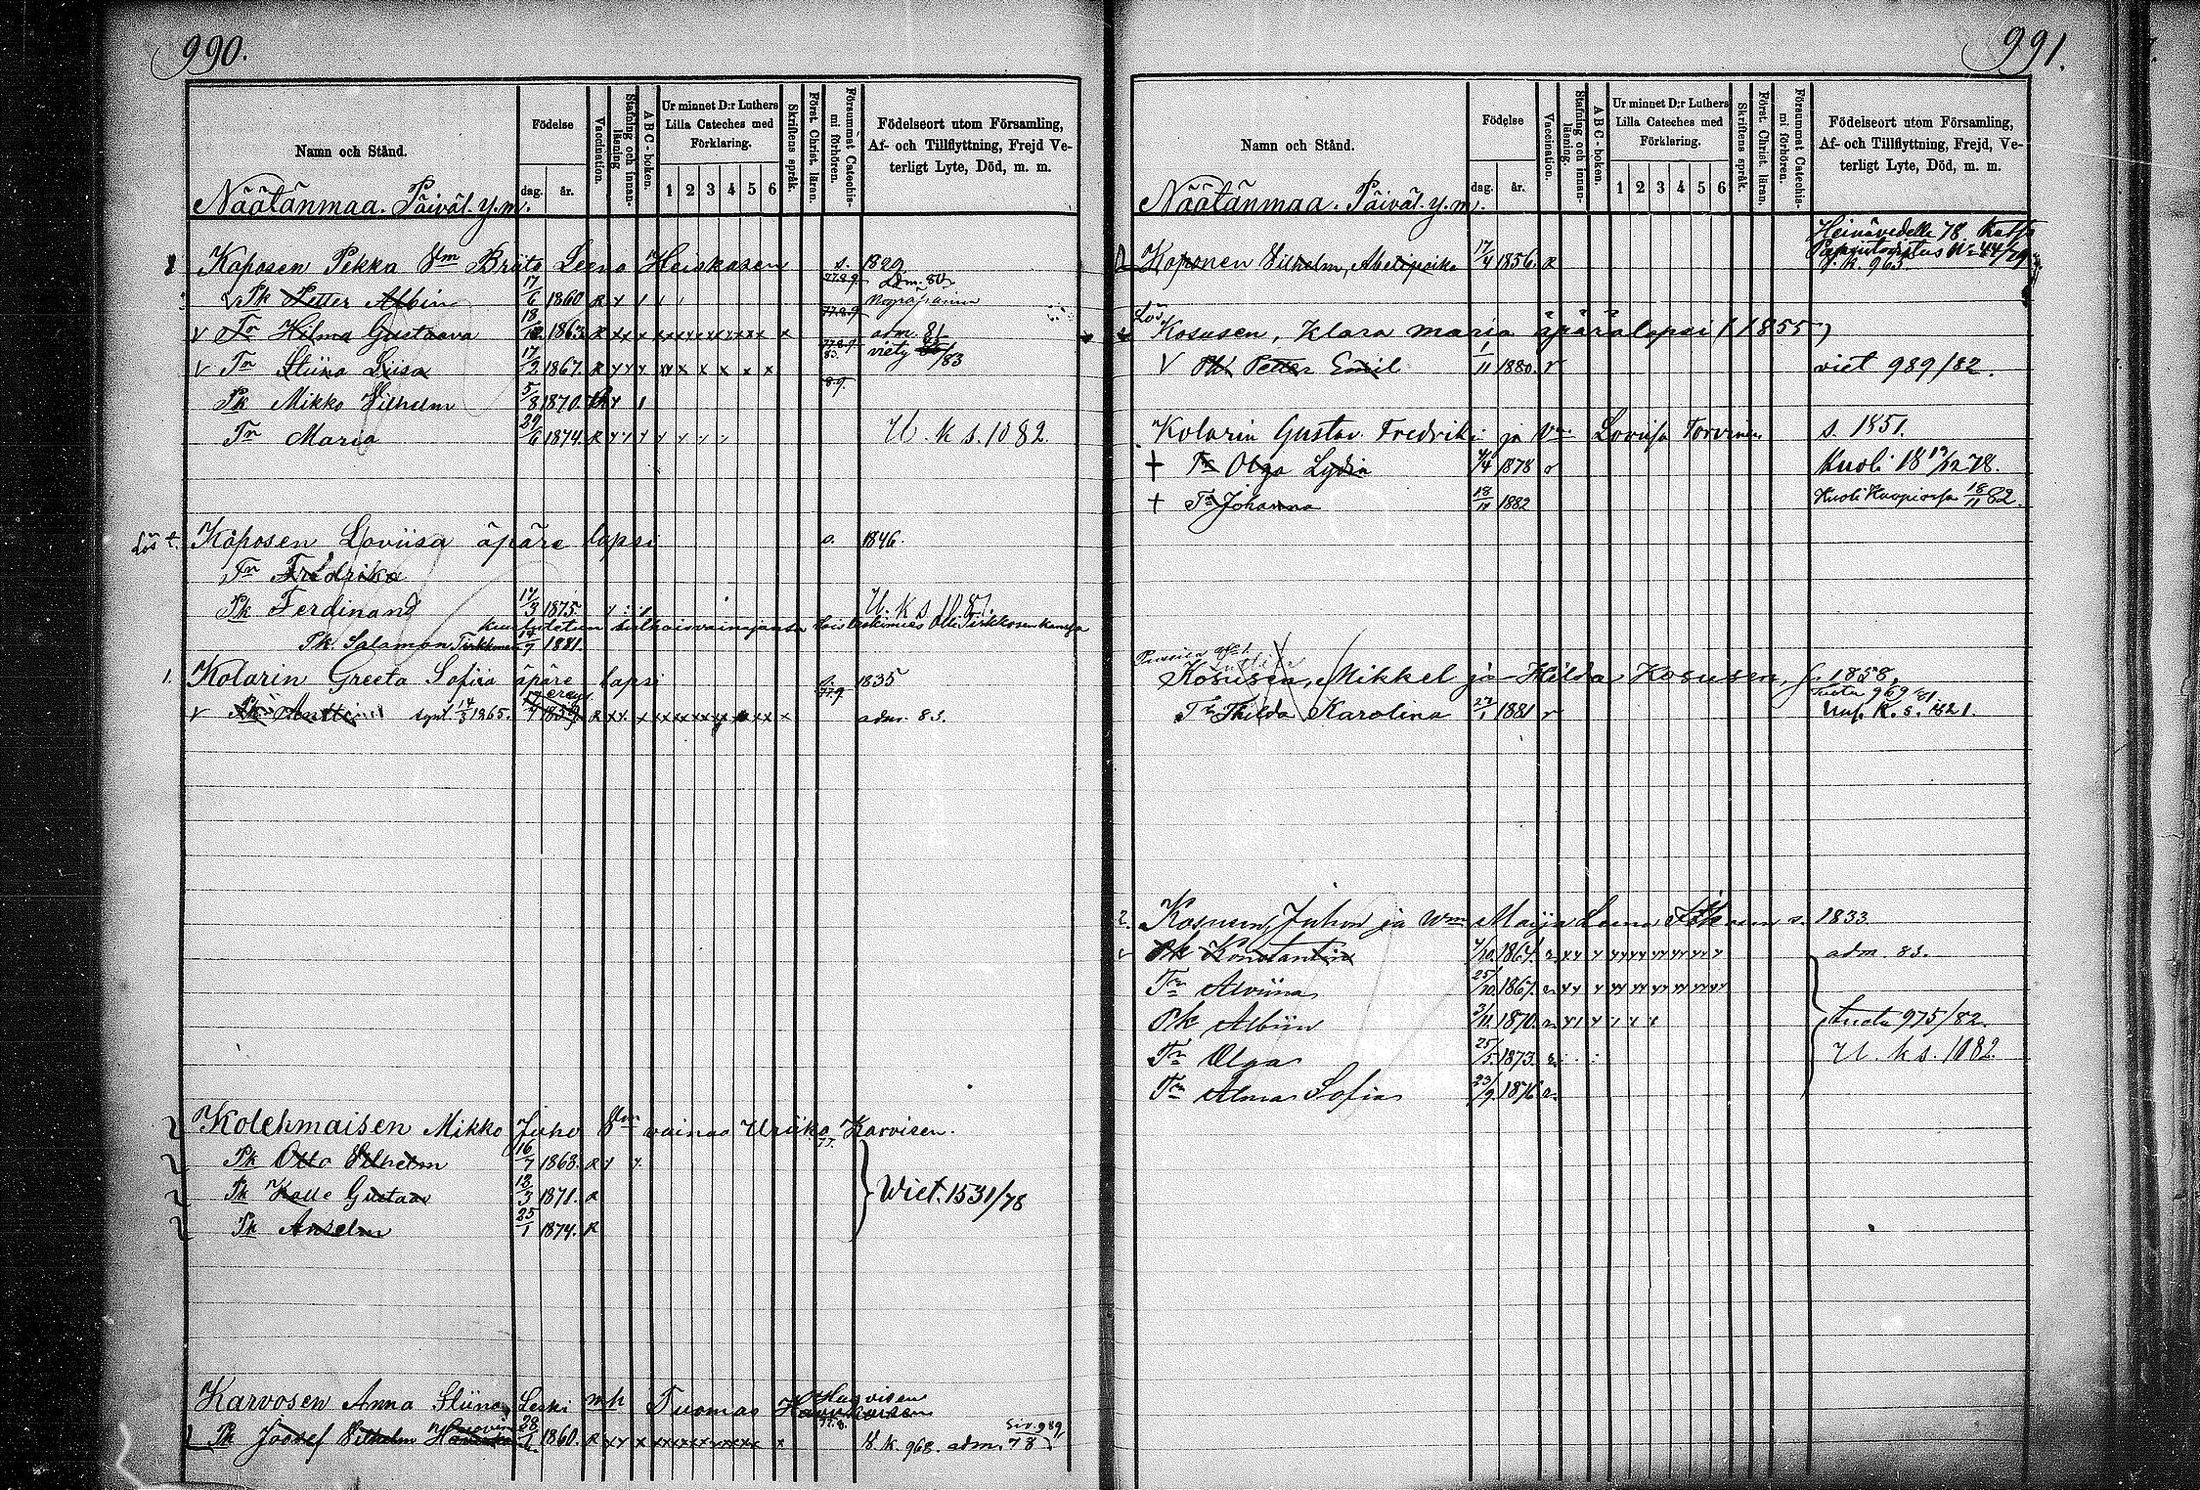 990.
Namn och Stånd.
Födelse
dag.
år.
Vaccination.
Stafning och innan-
läsning
ABC-boken.
Ur minnet D:r Luthers
Lilla Cateches med
Förklaring.
1 2 3 4 5 6
Skriftens språk.
Först. Christ. läran.
Försummat Catechis-
mi förhören.
Födelseort utom Församling,
Af- och Tillflyttning, Frejd Ve-
terligt Lyte, Död, m. m.
Näätänmaa. Päiväl. y. m.
Kaposen Pekka Vm Briita Leena Heiskasen s. 1829
Pk Petter Albin 17/6 1860 R
Tr Hilma Gustaava 18/ 1863 R adm. 81
Tr Stiina Liisa 17/3 1867 R viety /83
Pk Mikko Vilhelm 5/8 1870
Tr Maria 29/6 1874 R U. k s. 1082
Lös Kaposen Loviisa äpäre lapsi s. 1846.
Tr Fredrika
Pk Ferdinand 17/3 1875 U. k s 1081.
Kuulutetun sulhaisvainajansa loiskimies Olli Tirkkosen kanssa
Pk. Salamon Tirkkonen 14/7 1881.
1. Kolarin Greeta Sofiia äpäre lapsi 1835
Pk Antti synt. 14/3 1865. R adm. 83.
Kolehmaisen Mikko Juho Vm vainaa Ulriika Karvisen.
Pk Otto Vilhelm 16/7 1868. R
Pk Kalle Gustaav 13/3 1871. R Wiet. 1531/78
Pk Anselm 25/1 1874. R
Karvosen Anna Stiina Leski mh Tuomas
Pk Joosef Vilhelm 28/ 1860. R U. k. 968. adm. 78
Siv. 989
991.
Namn och Stånd.
Födelse
dag.
år.
Vaccination.
Stafning och innan-
läsning.
ABC-boken.
Ur minnet D:r Luthers
Lilla Cateches med
Förklaring.
1 2 3 4 5 6
Skriftens språk.
Först. Christ. läran.
Försummat Catechis-
mi förhören.
Födelseort utom Församling,
Af- och Tillflyttning, Frejd, Ve-
terligt Lyte, Död, m. m.
Näätänmaa. Päiväl. y. m.
Heinävedelle 78 Katso
Koponen Vilhelm, Abelinpoika 17/4 1856. R
k. 963.
Lös.
Kosusen, Klara Maria äpärälapsi (1855)
Pk Petter Emil 1/11 1880. r viet 989/82.
Kolarin Gustav Fredrik ja Vm Loviisa Torvinen s. 1851.
† Tr Olga Lydia /4 1878 r Kuoli 18 17/12 78.
† Tr Johanna 18/11 1882 Kuoli Kuopiossa 18/11 82.
Kosusen, Mikkel ja Hilda Kosusen, s. 1858,
tuotu 969/81
Tr Hilda Karolina 27/1 1881 r Uus. K. s. 1821.
2. Kosusen, Juhon ja Wm Maija Leena s. 1833.
Pk Konstantin /10 1864. r adm. 83.
Tr Alviina 25/10 1867. r
Pk Albiin 3/11 1870. r tuotu 975/82.
Tr Olga 25/5 1873. r U. k s. 1082.
Tr Alma Sofia 23/9 1876 r